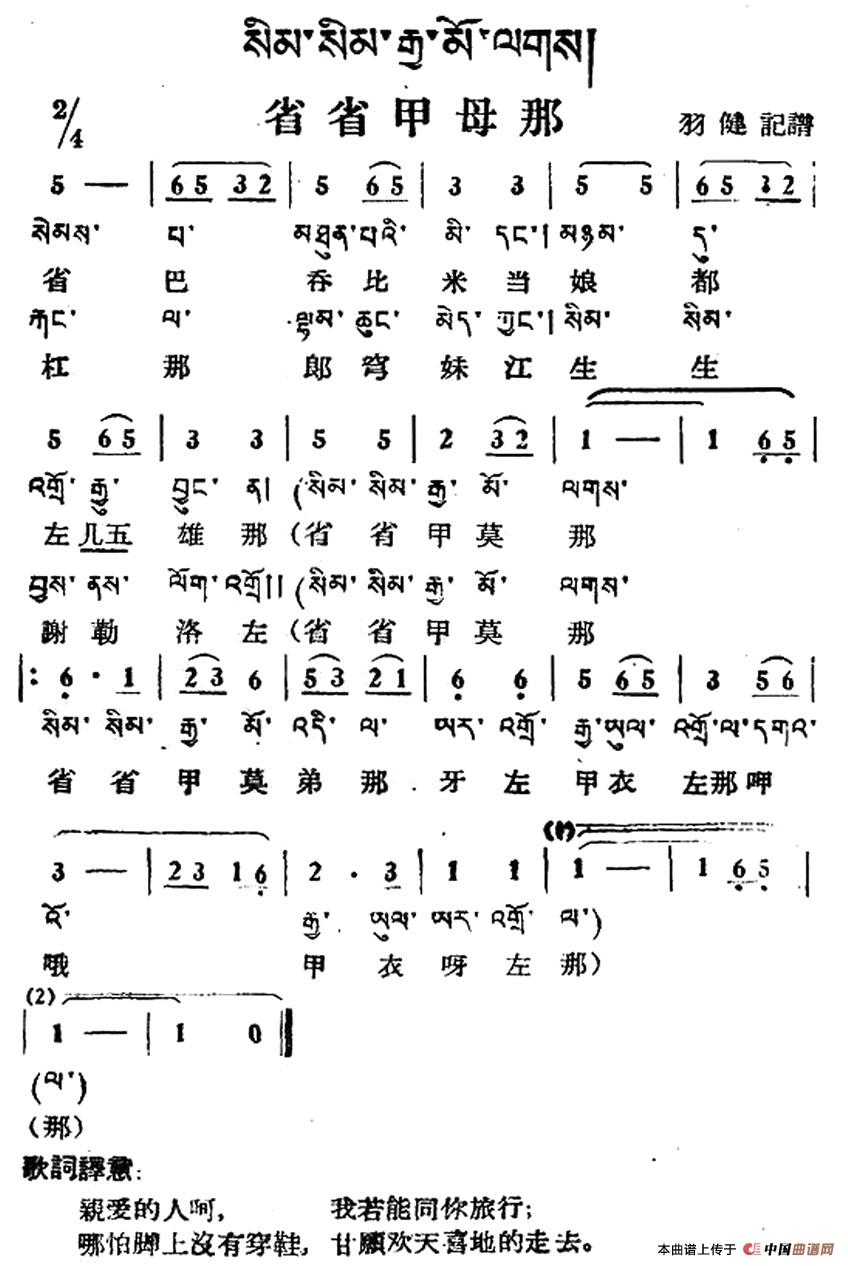 སིམ་སིམ་རྒྱ་མོ་ལགས།
省省甲母那
2/4
羽健記譜
5 — | 6 5 3 2 | 5 6 5 | 3 3 | 5 5 | 6 5 3 2 |
སེམས་ པ་ མཐུན་པའི་ མི་ དང་། མཉམ་ དུ་
省 巴 吞比 米当娘 都
རྐང་ ལ་ ལྷམ་ཆུང་ མེད་ ཀྱང་། སིམ་ སིམ་
杠 那 郎穹妹江生 生
5 6 5 | 3 3 | 5 5 | 2 3 2 | 1 — | 1 6 5 |
འགྲོ་རྒྱུ་ བྱུང་ ན། (སིམ་ སིམ་ རྒྱ་ མོ་ ལགས་
左几五 雄 那(省 省 甲莫 那
བྱས་ ནས་ ལོག་འགྲོ།། (སིམ་ སིམ་ རྒྱ་ མོ་ ལགས་
謝勒 洛 左(省 省 甲莫 那
|: 6 · 1 | 2 3 6 | 5 3 2 1 | 6 6 | 5 6 5 | 3 5 6 |
སིམ་ སིམ་ རྒྱ་ མོ་ འདི་ ལ་ ཨར་ འགྲོ་ རྒྱ་ཡུལ་ འགྲོ་ལ་དགའ་
省省 甲 莫弟那 牙左 甲衣 左那呷
3 — | 2 3 1 6 | 2 · 3 | 1 1 | (1) 1 — | 1 6 5 |
འོ་ རྒྱ་ ཡུལ་ ཨར་ འགྲོ་ ལ་)
哦 甲 衣 呀左 那)
(2)
| 1 — | 1 0 ‖
(ལ་)
(那)
歌詞譯意:
親爱的人呵, 我若能同你旅行;
哪怕脚上沒有穿鞋, 甘願欢天喜地的走去。
本曲谱上传于 中国曲谱网